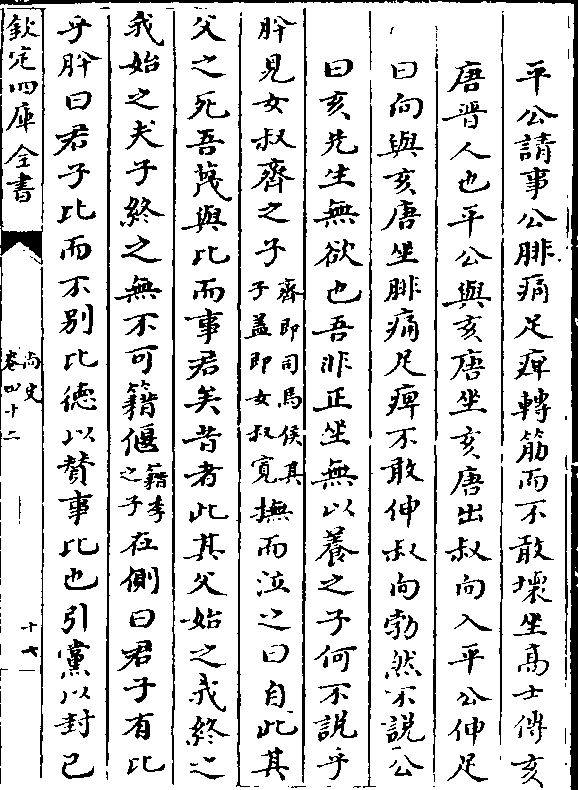 平公請事公腓痛足痺轉筋而不敢壞坐高士傳亥
唐晉人也平公與亥唐坐亥唐出叔向入平公伸足
曰向與亥唐坐腓痛足痺不敢伸叔向勃然不說公
曰亥先生無欲也吾非正坐無以養之子何不說乎
肸見女叔齊之子齊即司馬侯其子蓋即女叔寛撫而泣之曰自此其
父之死吾蔑與比而事君矣昔者此其父始之我終之
我始之夫子終之無不可籍偃籍季之子在側曰君子有比
乎肸曰君子比而不别比德以賛事比也引黨以封已
欽定四庫全書
尚史
卷四十二
十七